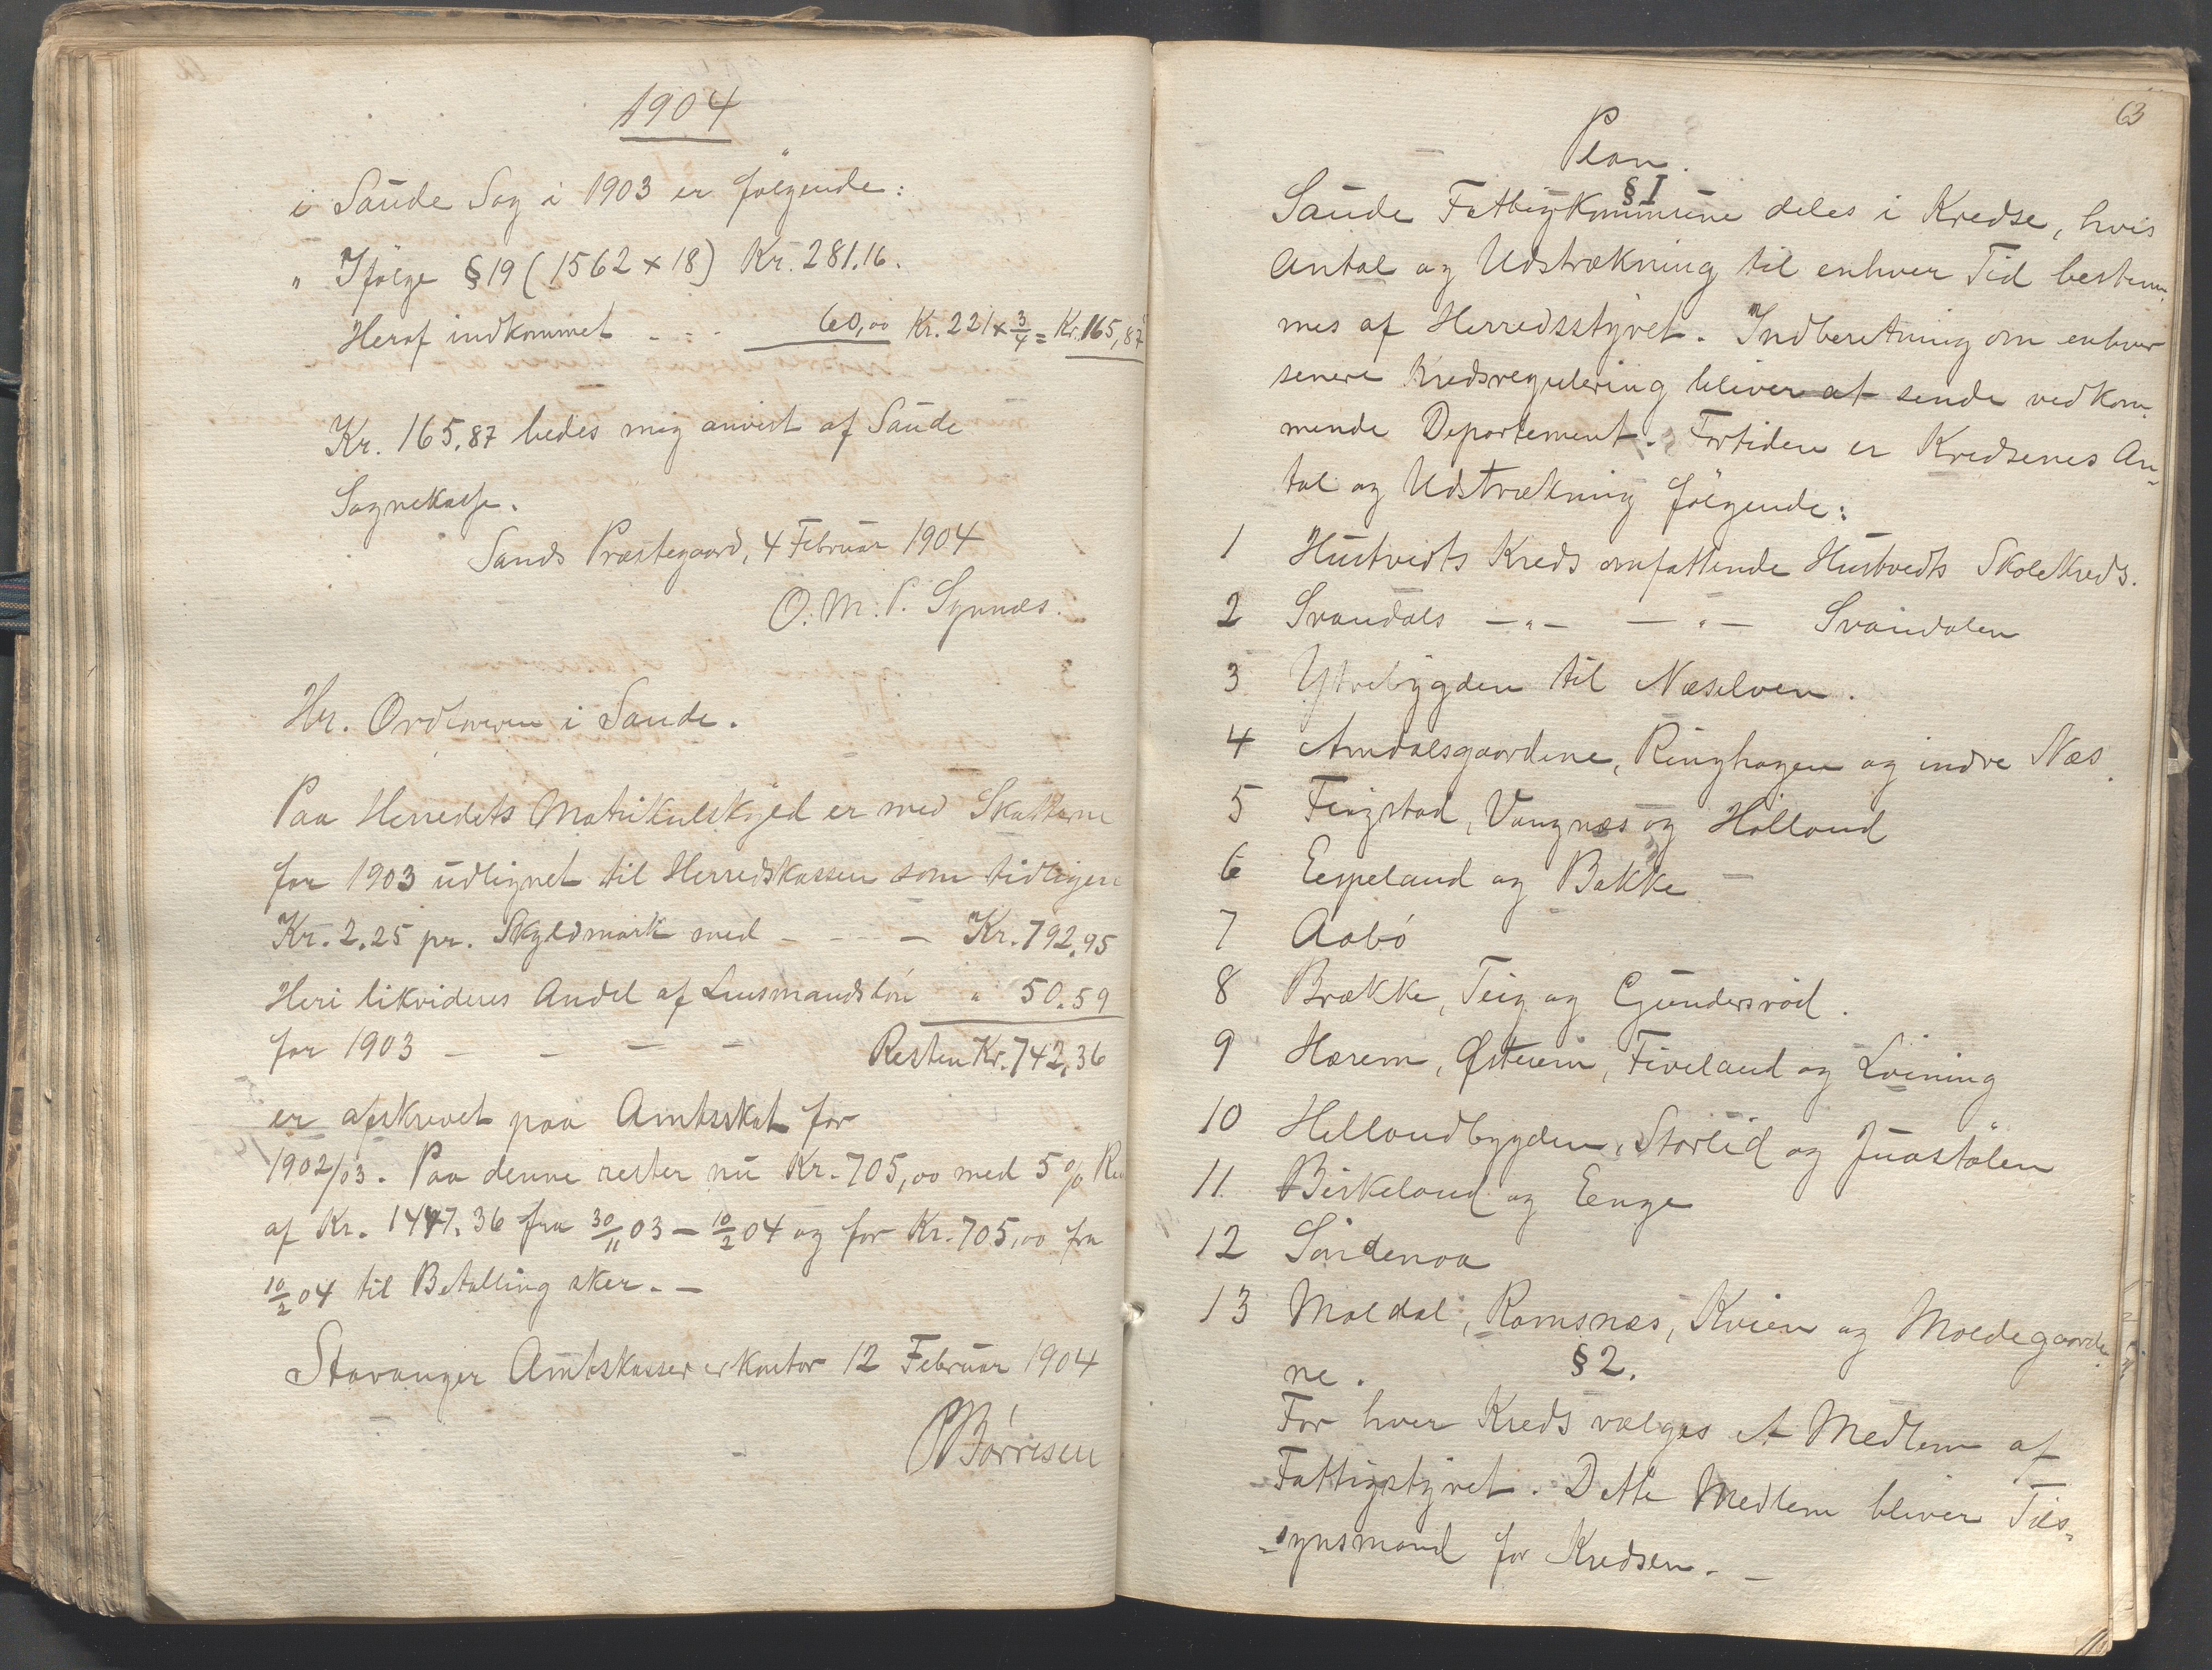 1904
i Saude Sog i 1903 er følgende:
" Ifølge § 19 (1562 x 18) Kr. 281.16.
Heraf indkommet - - - 60,00 Kr. 221 x 3/4 = Kr. 165,87
Kr. 165.87 bedes mig anvist af Saude
Sognekasse.
Sands Præstegaard, 4 Februar 1904
O. M. P. Synnes.
Hr. Ordføreren i Saude.
Paa Herredets Matrikulskyld er med Skatterne
for 1903 udlignet til Herredskassen som tidligere
Kr. 2.25 pr. Skyldmark med - - - Kr. 792.95
Heri likvideres Andel af Lensmandsløn " 50.59
for 1903 - - - - Resten Kr. 742,36
er afskrevet paa Amtsskat for
1902/03. Paa denne rester nu Kr. 705,00 med 5 %
af Kr. 1447.36 fra 30/11 03 - 10/2 04 og for Kr. 705,00 fra
10/2 04 til Betalling sker. -
Stavanger Amtskasserer kontor 12 Februar 1904
Børresen
63
Plan.
§ 1
Saude Fattigkommune deles i Kredse, hvis
Antal og Udstrækning til enhver Tid bestem-
mes af Herredsstyret. Indberetning om enhver
senere Kredsregulering bliver at sende vedkom-
mende Departement. Fortiden er Kredsenes An-
tal og Udstrækning følgende:
1 Hustvedts Kreds omfattende Hustvedts Skolekreds.
2 Svandals - " - - " - Svandalen
3 Ytrebygden til Næselven.
4 Amdalsgaardene, Ringhagen og indre Næs.
5 Fiigstad, Vangnæs og Hølland
6 Eespeland og Bakke
7 Aabø
8 Brække, Teig og Gundersrød.
9 Hærem, Østerein, Fiveland og Løining
10 Hellandbygden, Storlid og Juastølen
11. Birkeland og Eenge
12 Søndenaa
13 Maldal, Ramsnæs, Kvien og Moldegaarde-
ne.
§ 2.
For hver Kreds vælges et Medlem af
Fattigstyret. Dette Medlem bliver Til-
synsmand for Kredsen. -